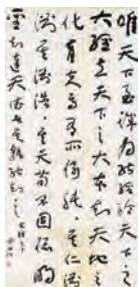 唯天下至誠為能經綸天下之
大經立天下之大本知天地之
化育夫焉有所倚肫肫其仁淵
淵其淵浩浩其天苟不固聰明
聖知達天德者其孰能知之